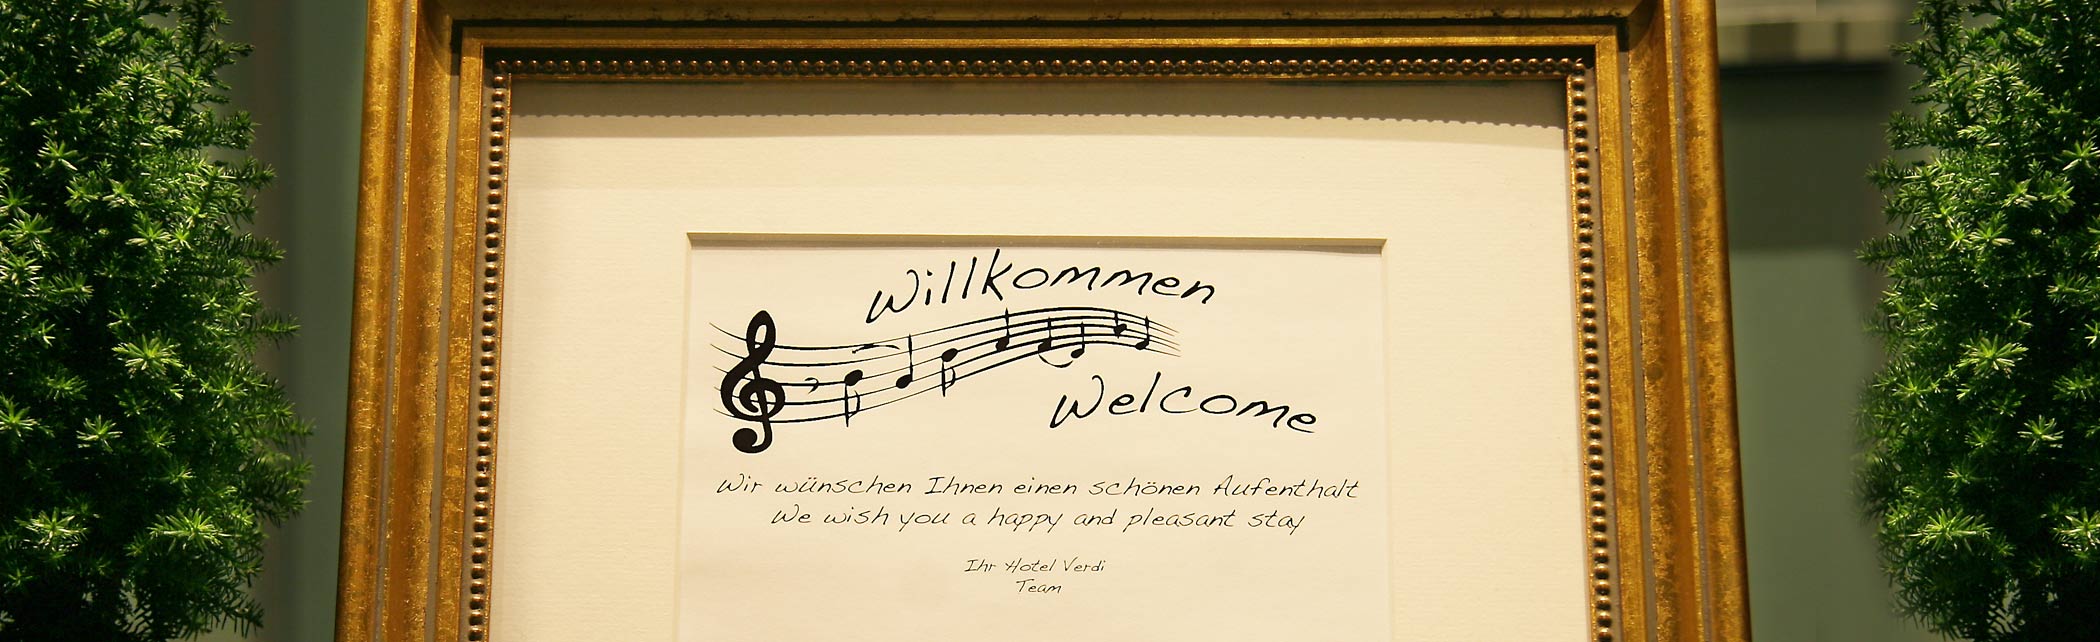 Willkommen
Welcome
Wir wünschen Ihnen einen schönen Aufenthalt
We wish you a happy and pleasant stay
Ihr Hotel Verdi
Team